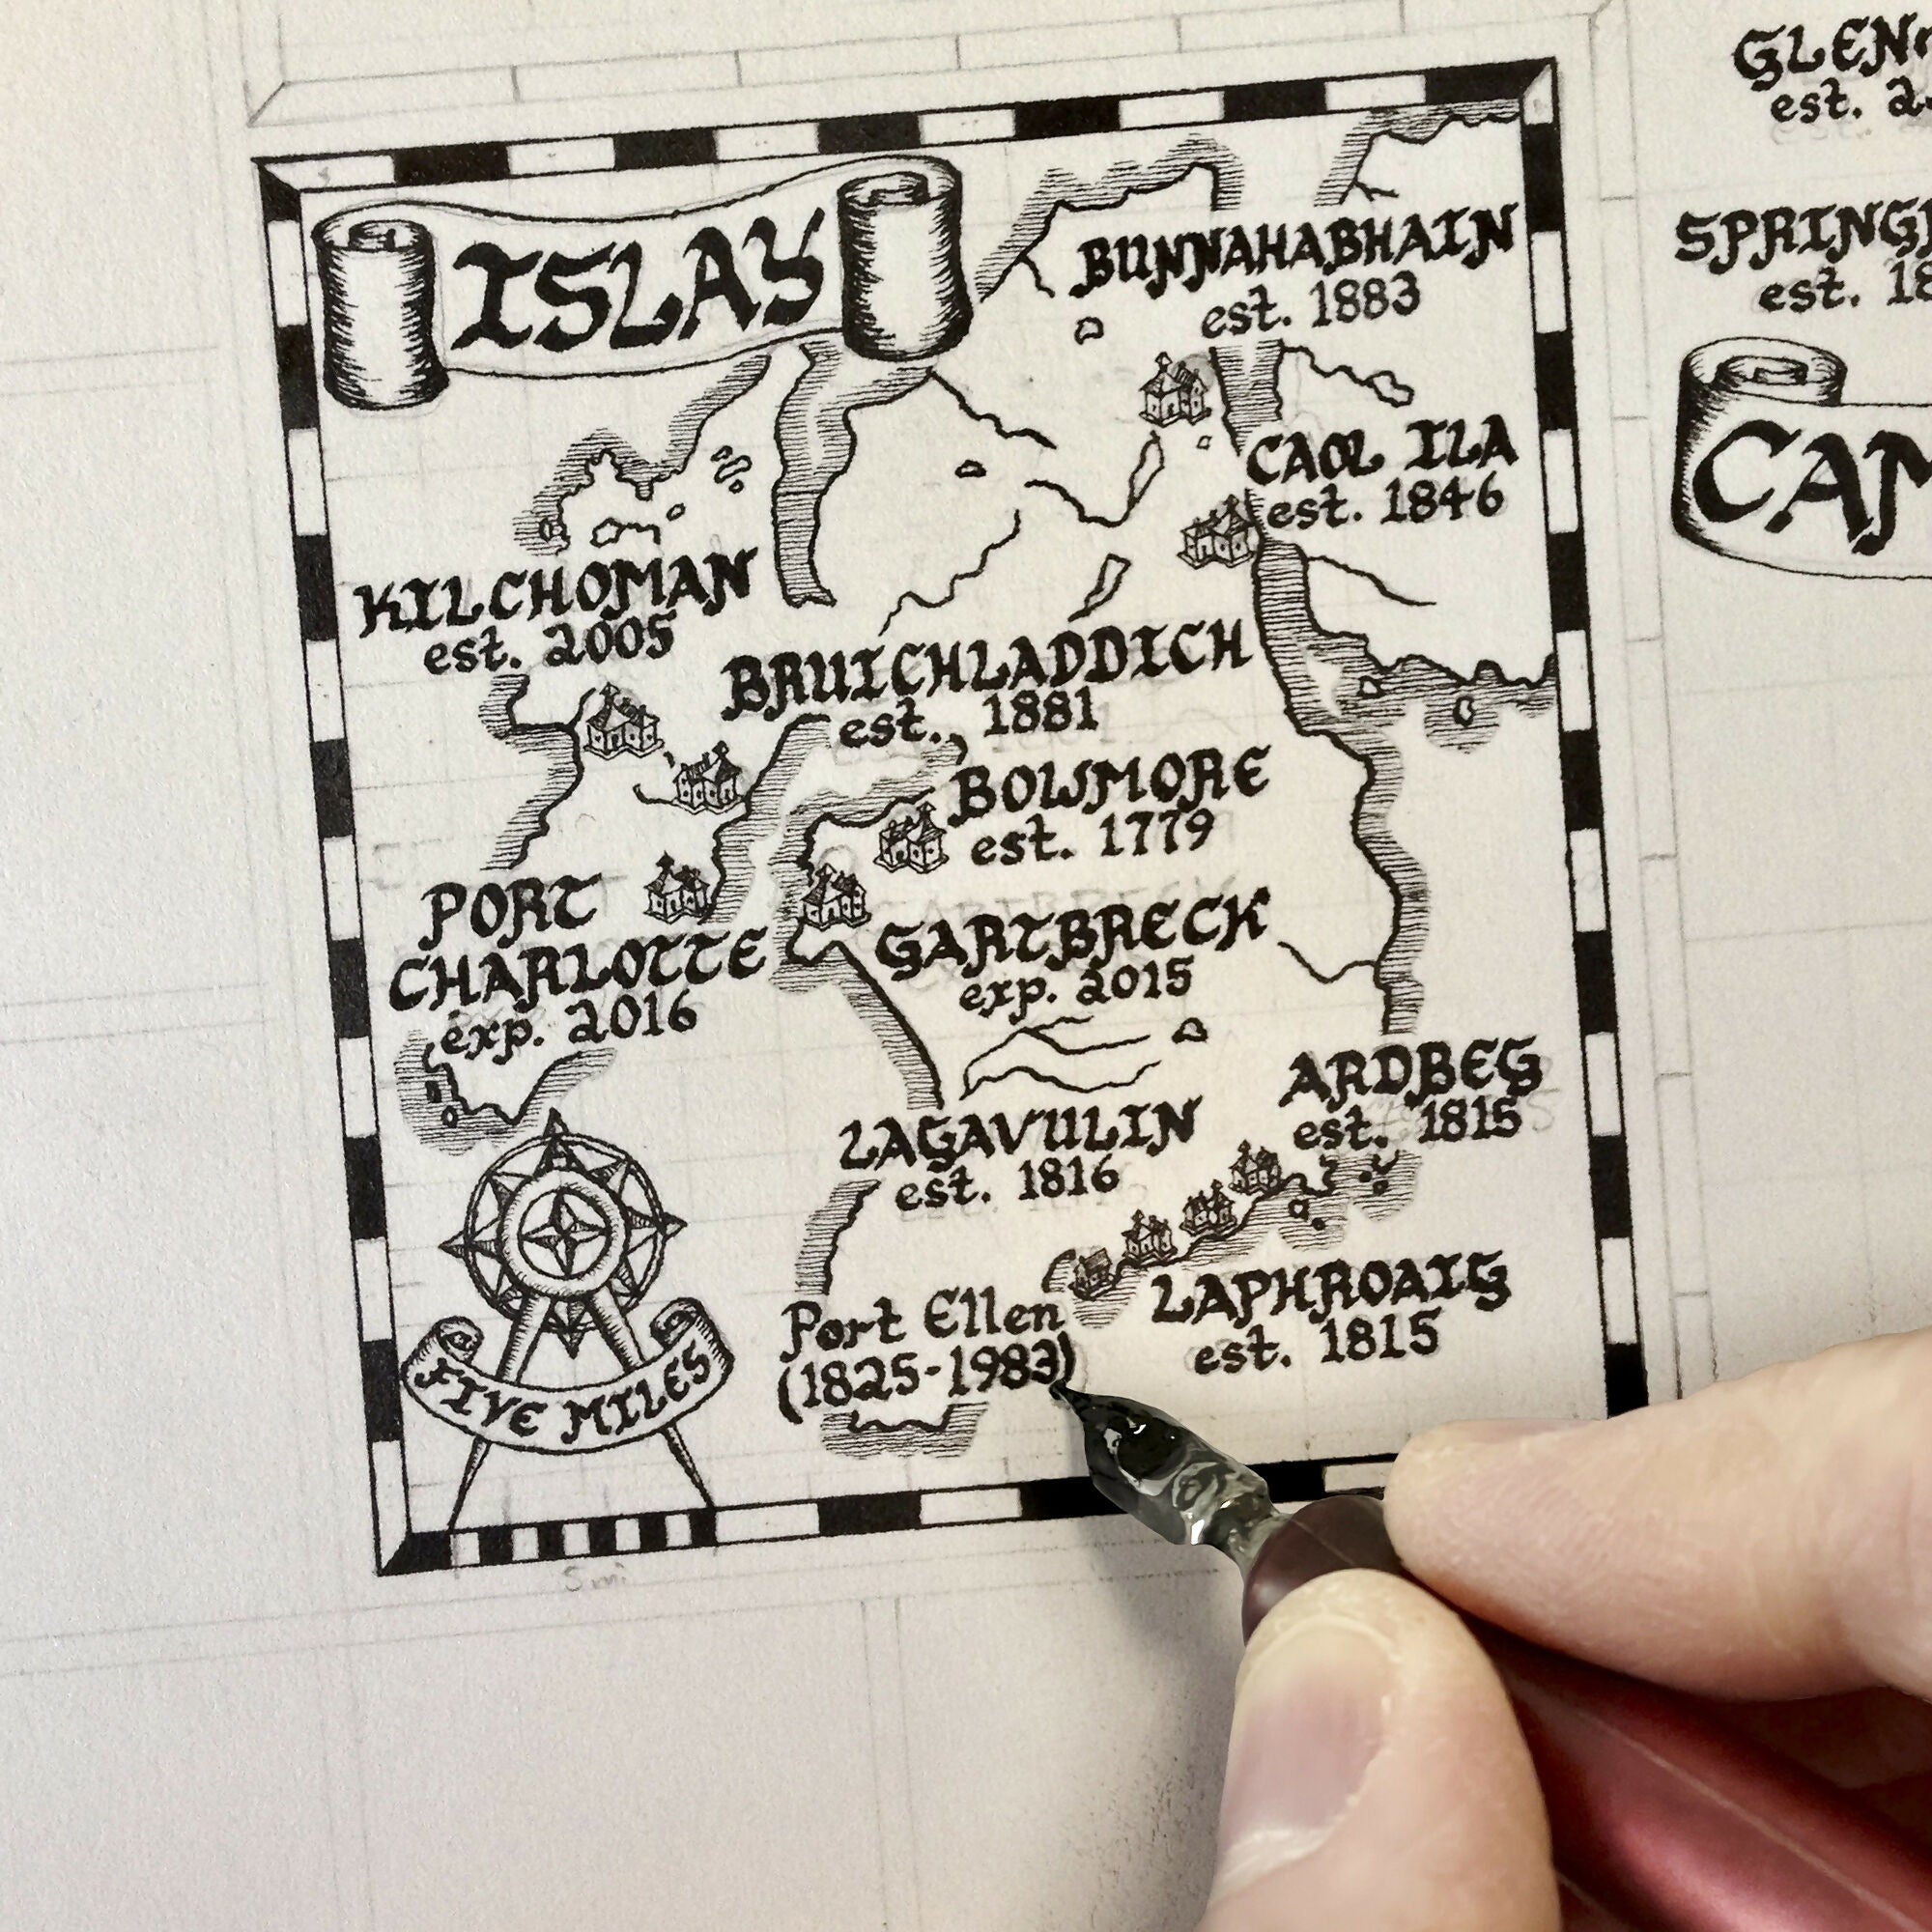 ISLAY
BUNNAHABHAIN
est. 1883
CAOL ILA
est. 1846
KILCHOMAN
est. 2005
BRUICHLADDICH
est. 1881
BOWMORE
est. 1779
PORT
CHARLOTTE
exp. 2016
GARTBRECK
exp. 2015
ARDBEG
est. 1815
LAGAVULIN
est. 1816
LAPHROAIG
est. 1815
Port Ellen
(1825-1983)
FIVE MILES
5 mi
est.
est. 18